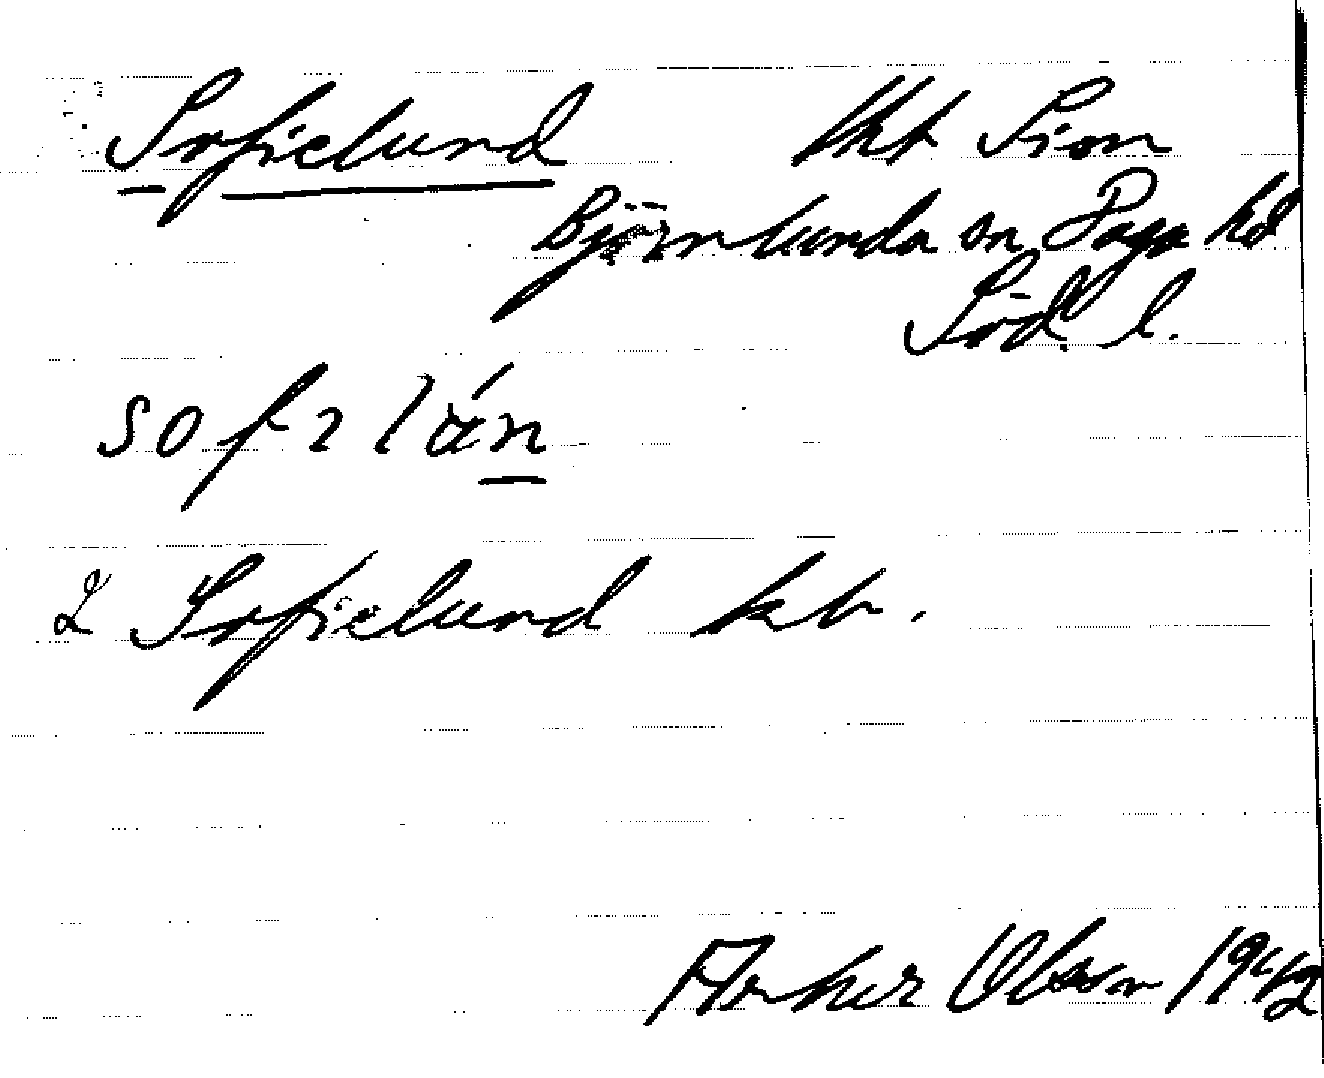 Sofielund lht Sion
Björnlunda sn Daga hd
Söd. l.
sofɩlún
Sofielund kb.
Folker Olsson 1942